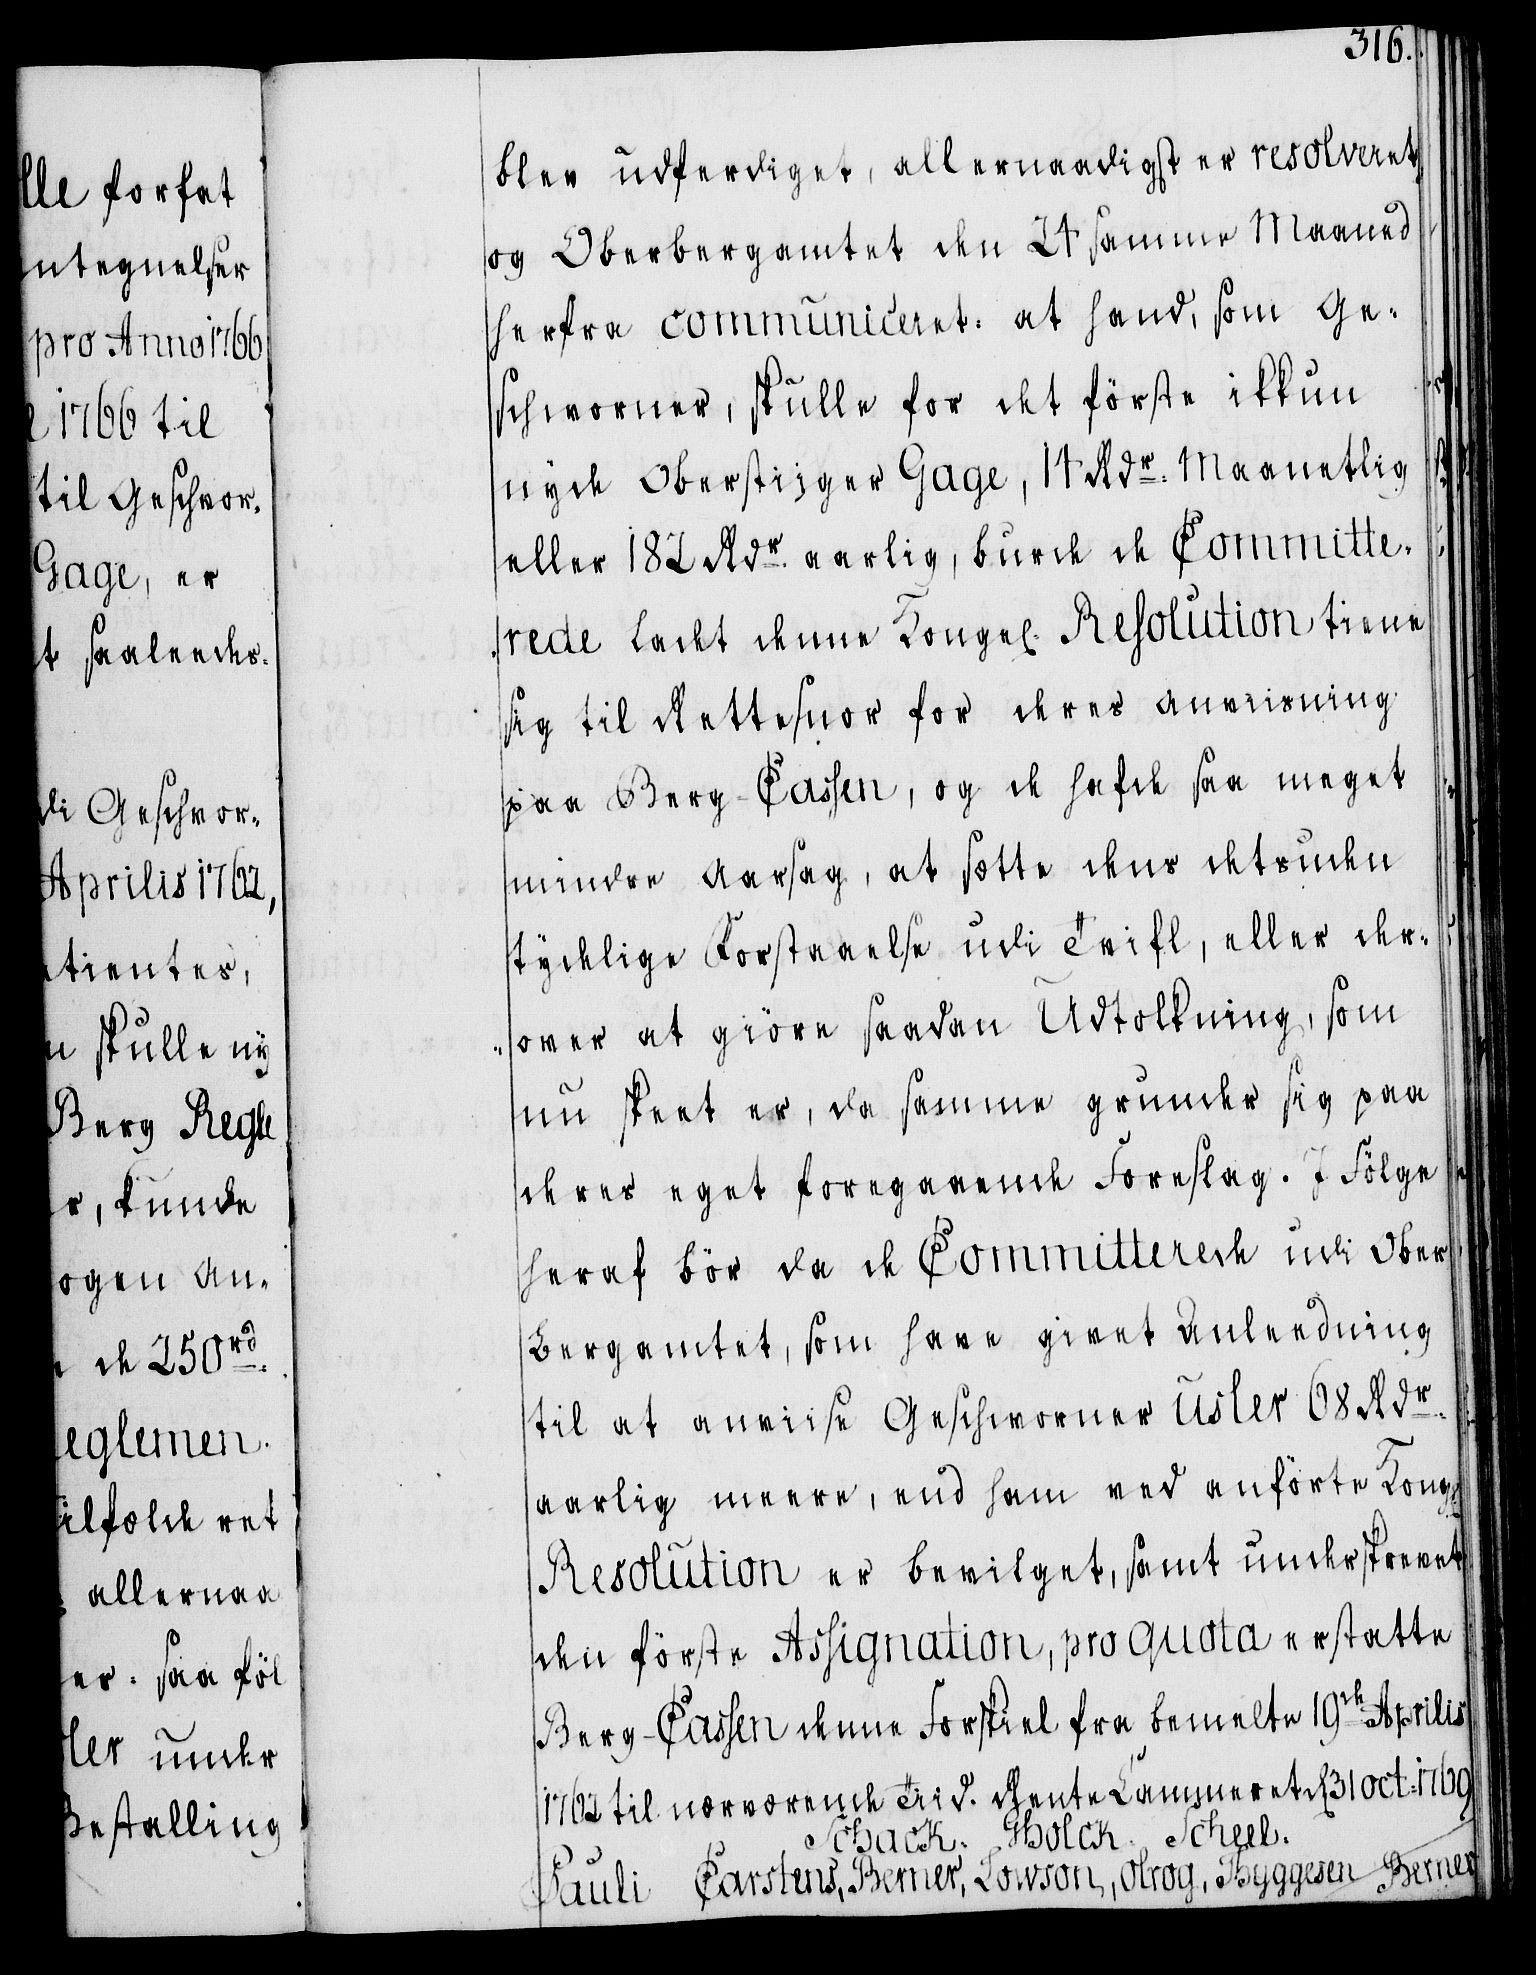 316.
lle forfat
ntegnelser
pro Anno 1766
1766 til
til Geschvor-
Gage, er
t saaleedes.
di Geschvor-
Aprilis 1762,
tientes,
skulle ny
Berg Regle
r, kunde
ogen An-
de 250 rd.
eglemen-
ilfælde ret
allernaa
er: saa föl
ler under
Bestalling
blev udferdiget, allernaadigst er resolveret,
og Oberbergamtet den 24 samme Maaned
herfra communiceret: at hand, som Ge-
schworner, skulle for det förste ikkun
nyde Oberstiiger Gage, 14 Rdr. Maanetlig
eller 182 Rdr. aarlig, burde de Committe-
rede ladt denne Kongel. Resolution tiene
sig til Rettesnor for deres Anviisning
paa Berg-Cassen, og de hafde saa meget
mindre Aarsag, at sætte dens desuden
tydelige Forstaaelse udi Tvifl, eller der-
over at giöre saadan Udtolkning, som
nu skeet er, da samme grunder sig paa
deres eget foregaaende Forslag. I Fölge
heraf bör da de Committerede udi Ober
Bergamtet, som have givet Anleedning
til at anviise Geschworner Usler 68 Rdr.
aarlig meere, end ham ved anförte Kongl.
Resolution er bevilget, samt underskrevet
den förste Assignation, pro quota erstatte
Berg-Cassen denne Forskiel fra bemelte 19de Aprilis
1762 til nærværende Tiid. Rente Cammeret d. 31 Oct: 1769
Schack. GHolck. Scheel.
Pauli Carstens, Berner, Lowson, Olrog, Thyggesen Berner